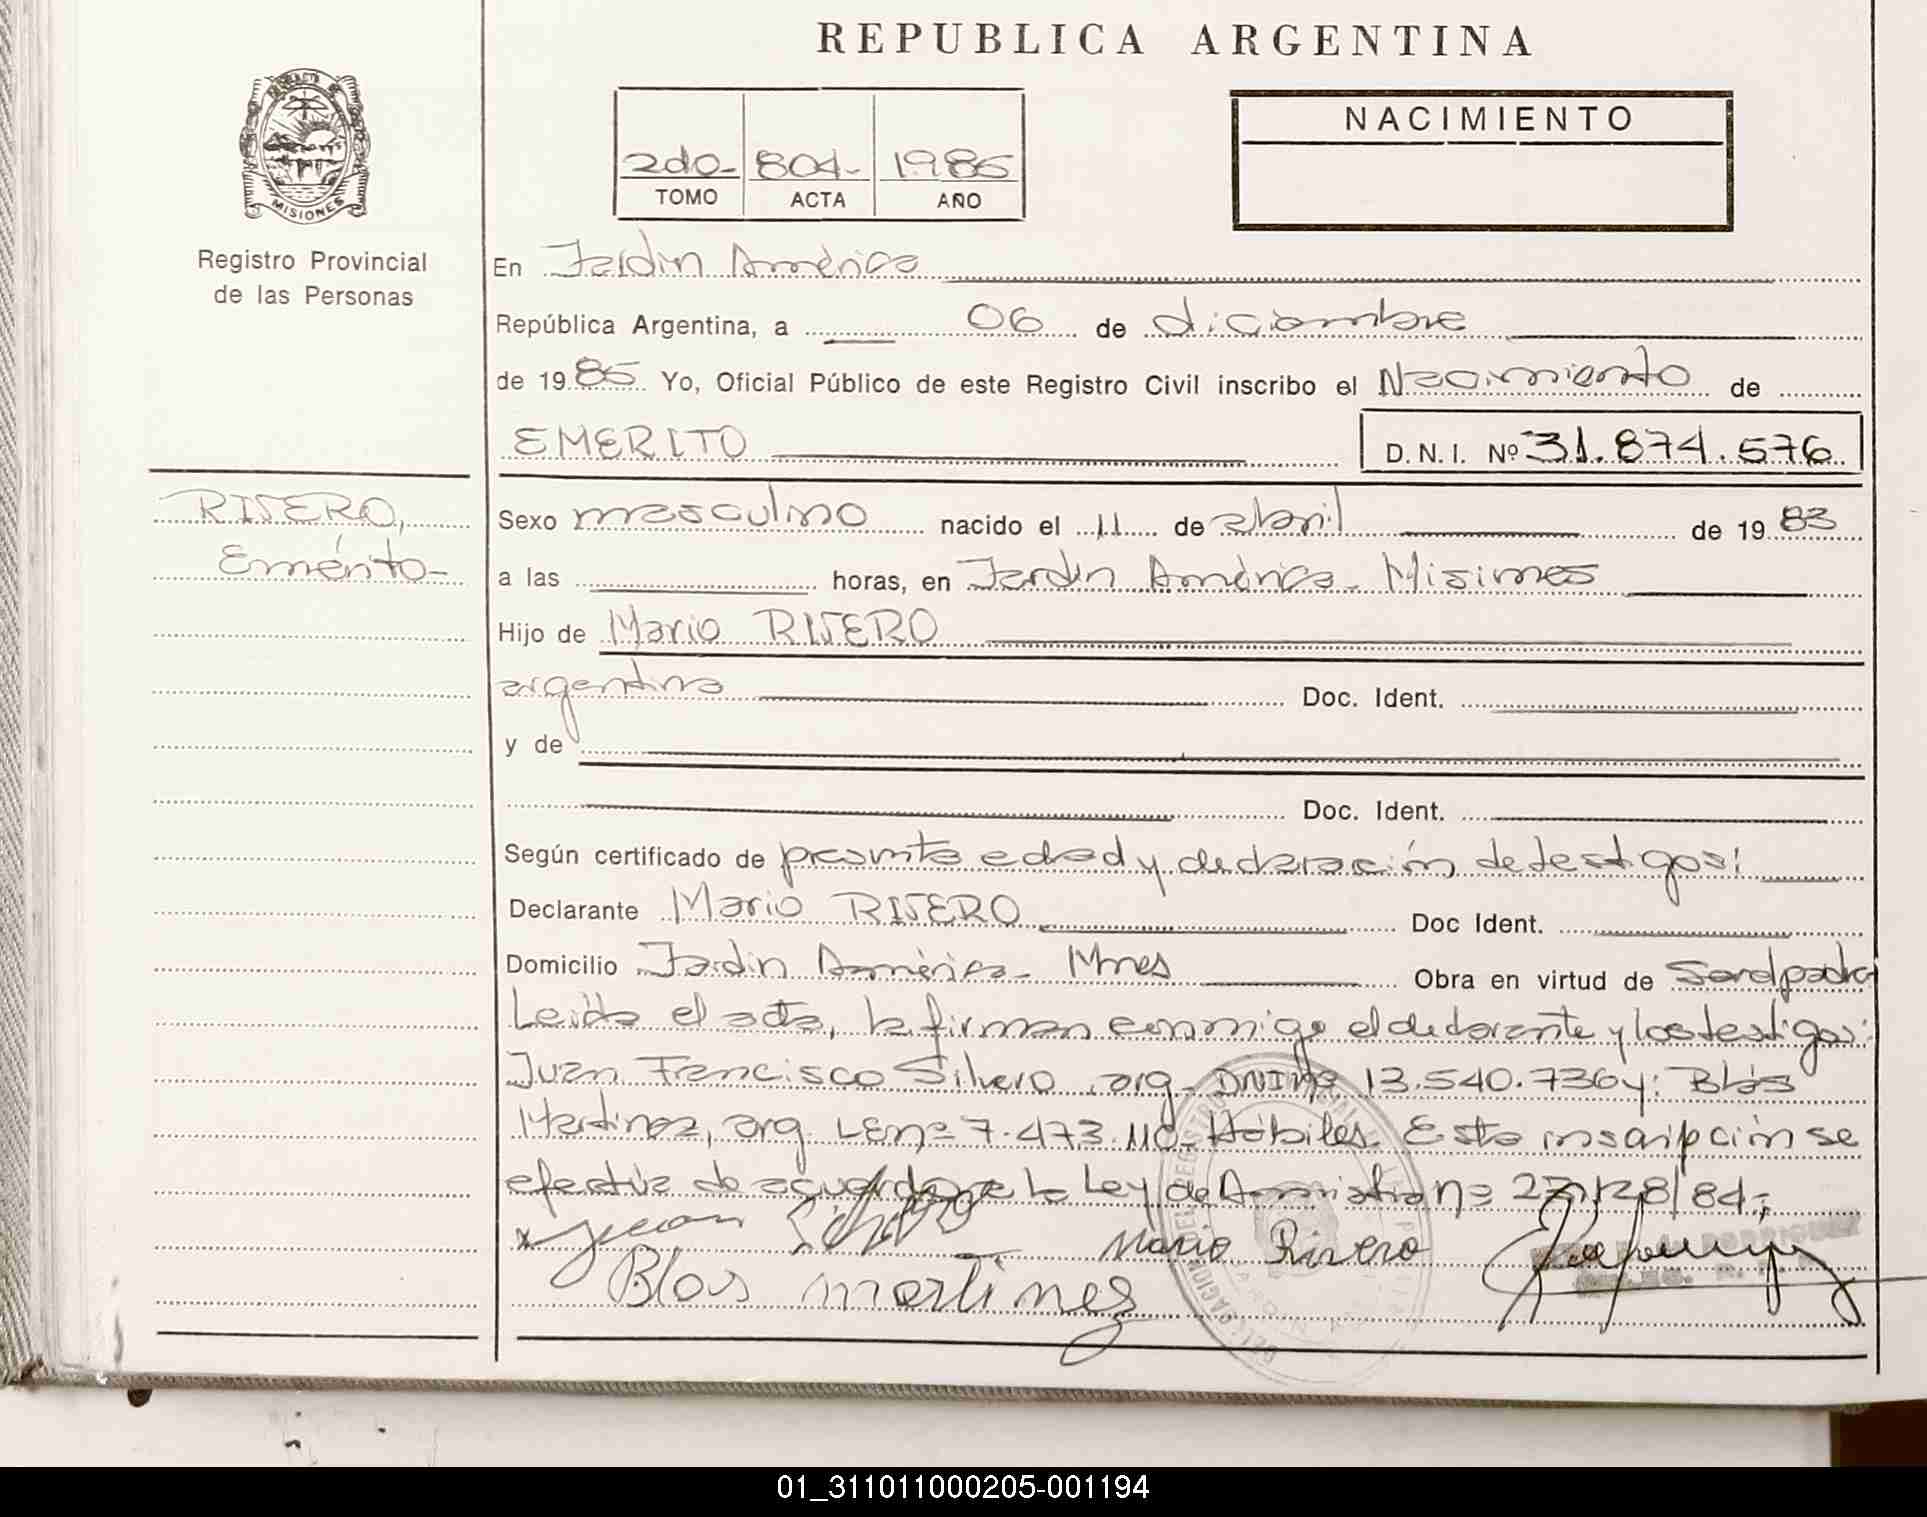 REPUBLICA ARGENTINA
MISIONES
Registro Provincial
de las Personas
2do- 804- 1985
TOMO ACTA AÑO
NACIMIENTO
En Jardín América
República Argentina, a 06 de diciembre
de 1985 Yo, Oficial Público de este Registro Civil inscribo el Nacimiento de
EMERITO D.N.I. Nº 31.874.576
RIVERO,
Emérito-
Sexo masculino nacido el 11 de abril de 1983
a las horas, en Jardín América- Misiones
Hijo de Mario RIVERO
argentina Doc. Ident.
y de
Doc. Ident.
Según certificado de presunta edad y declaración de testigos:
Declarante Mario RIVERO Doc Ident.
Domicilio Jardín América- Mnes Obra en virtud de Ser el padre
Leida el acta, la firman conmigo el declarante y los testigos:
Juan Francisco Silvero, arg- DNI nº 13.540.736 y: Blás
Martinez, arg. LE nº 7.473.110- Hábiles. Esta inscripción se
efectúa de acuerdo a la Ley de Amnistía nº 23.128/84-
x Juan Silvero Mario Rivero
Blas martinez
01_311011000205-001194